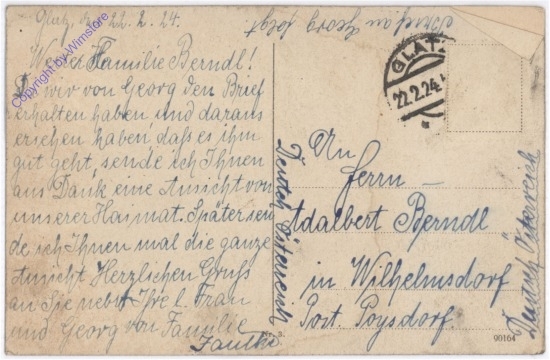 Glatz, 22.2.24.
Brief an Georg folgt.
Werter Familie Berndl!
Da wir von Georg den Brief
erhalten haben, und daraus
ersehen haben, daß es ihm
gut geht, sende ich Ihnen
aus Dank eine Ansicht von
unserer Haimat. Später sen
de ich Ihnen mal die ganze
Ansicht Herzlichen Gruß
an Sie nebst Ihre l. Frau
und Georg von Familie
GLATZ
22.2.24
An
Herrn
Adalbert Berndl
in Wilhelmsdorf
Post. Poysdorf.
Deutsch Östereich
Deutsch Östereich
90164
Copyright by Wimstore